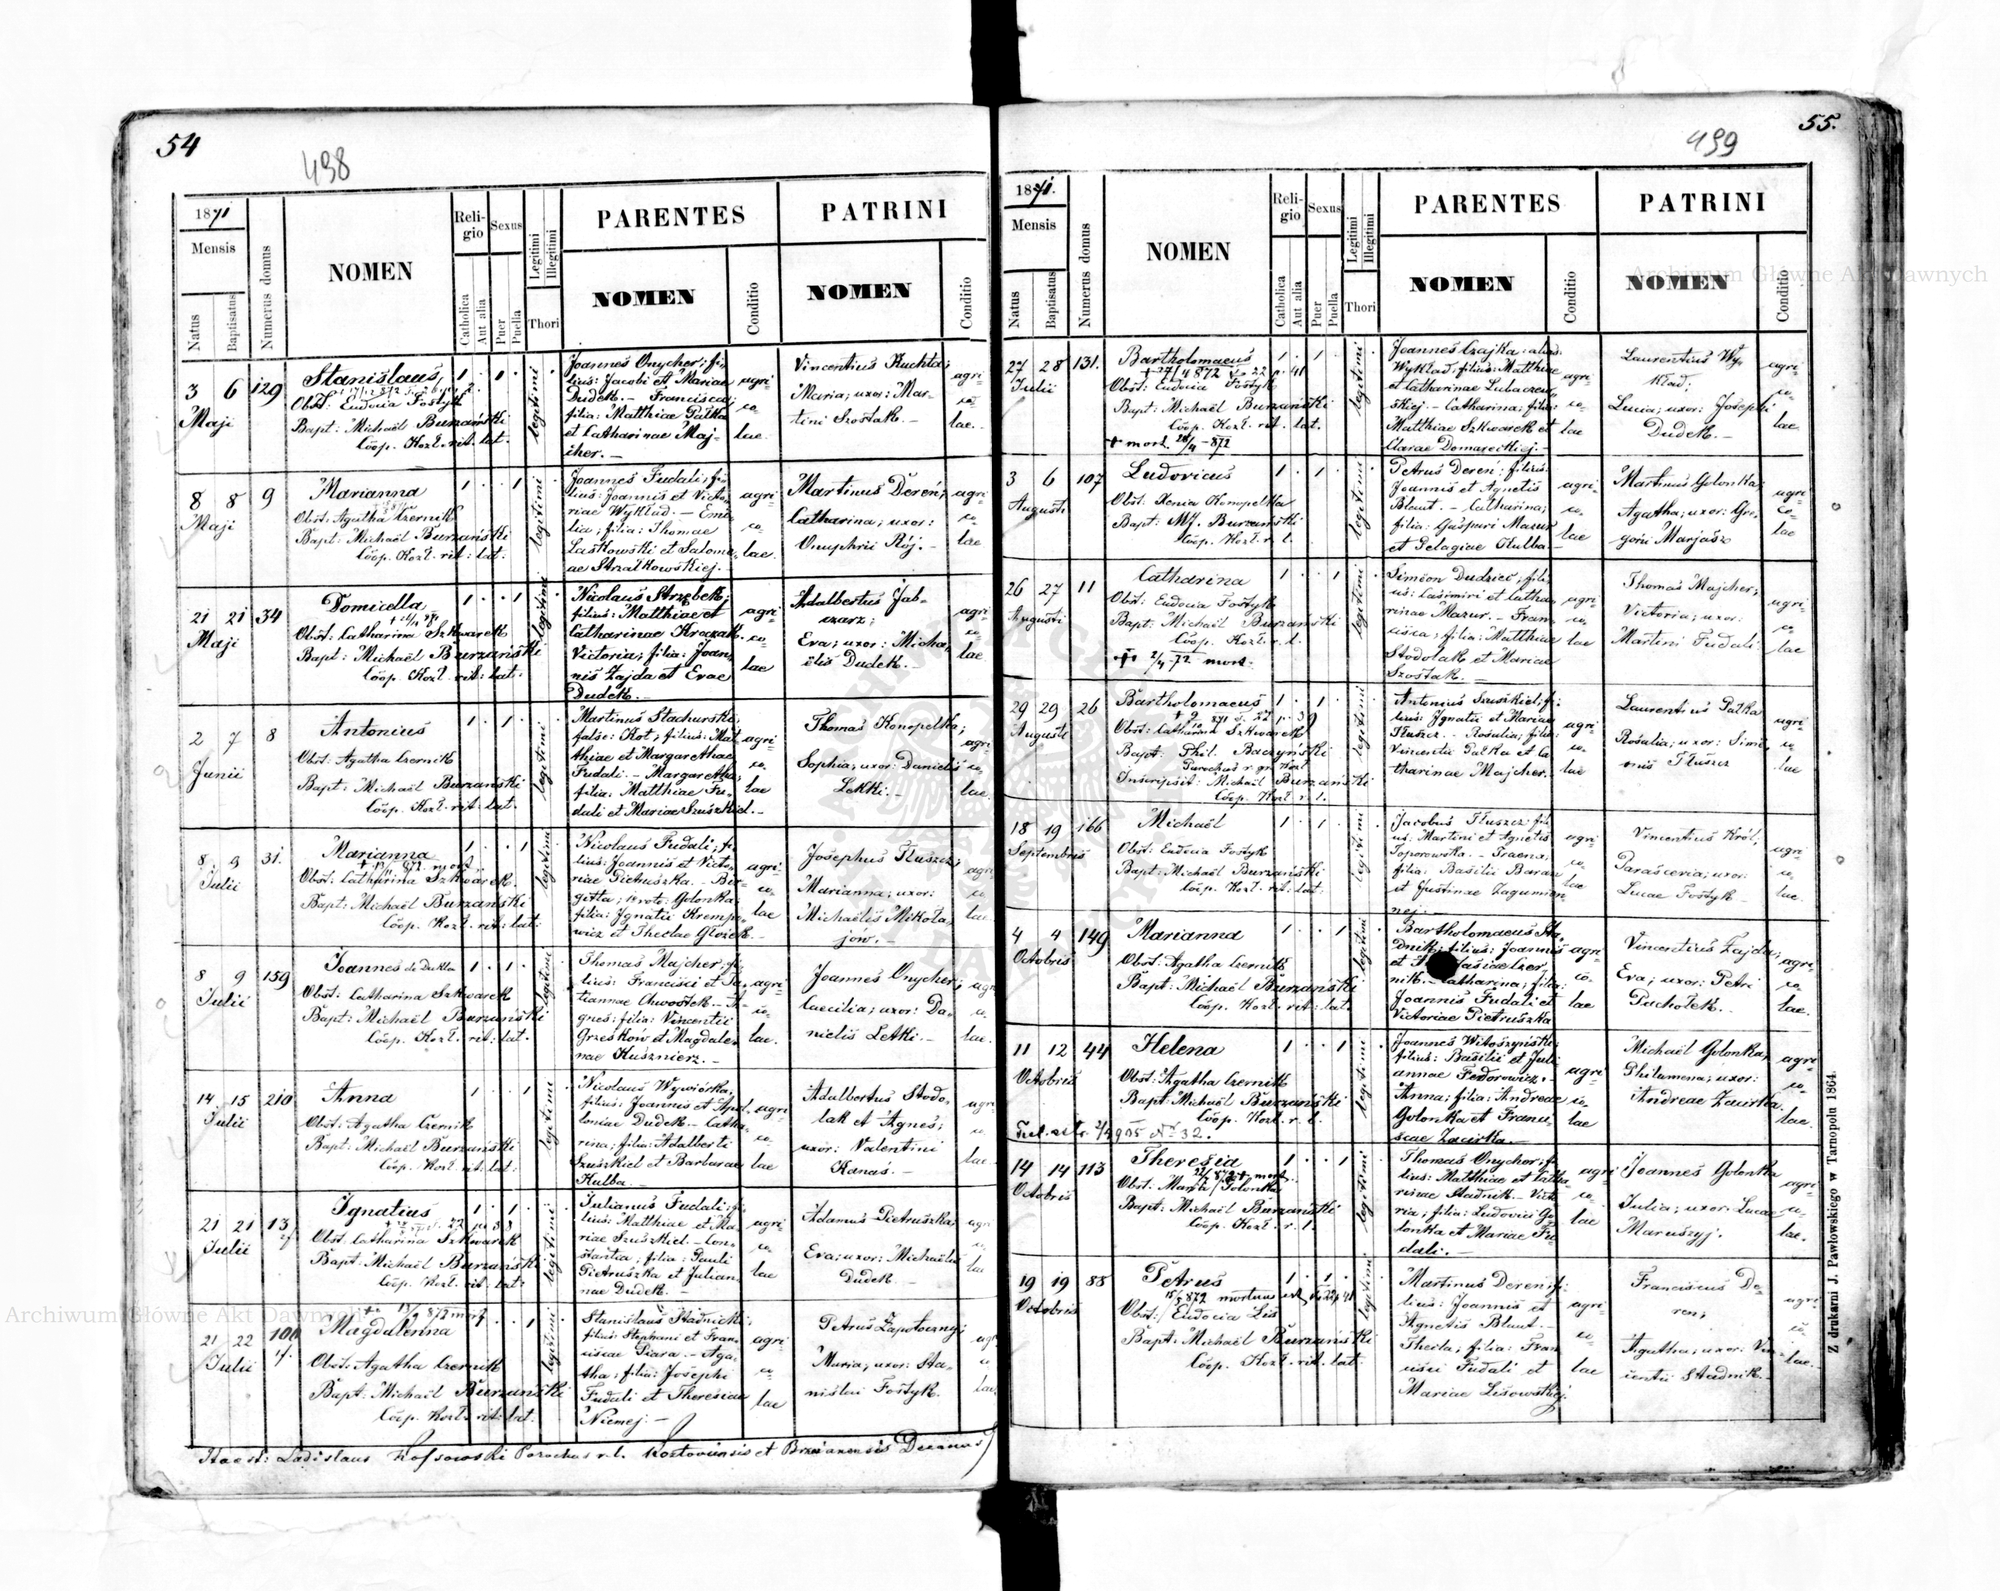 54
498
1871
Mensis
Natus
Baptisatus
Numerus domus
NOMEN
Reli-
gio
Catholica
Aut alia
Sexus
Puer
Puella
Legitimi
Illegitimi
Thori
PARENTES
NOMEN
Conditio
PATRINI
NOMEN
Conditio
3 6 129
Maji
Stanislaus
Obst: Eudocia Fostyk
Bapt: Michaël Burzański
Cöop. Kozł. rit. lat.
legitimi
Joannes Onycher; fi-
lius: Jacobi et Mariae
Dudek. – Francisca;
filia: Matthiae Pałka
et Catharinae Maj-
cher. –
agri-
co-
lae
Vincentius Ruchta;
Maria; uxor: Mar-
tini Szostak. –
agri-
co-
lae.
8 8 9
Maji
Marianna
Obst: Agatha Czernik
Bapt: Michaël Burzański
Cöop. Kozł. rit: lat:
legitimi
Joannes Fudali; fi-
lius: Joannis et Victo-
riae Wykład. – Emi-
lia; filia: Thomae
Laskowski et Salome-
ae Strzałkowskiej. –
agri-
co-
lae
Martinus Dereń;
Catharina; uxor:
Onuphrii Rój. –
agri-
co-
lae
21 21 34
Maji
Domicella
Obst: Catharina Szkwarek
Bapt: Michaël Burzański
Cöop. Kozł. rit: lat:
legitimi
Nicolaus Strzębek;
filius: Matthiae et
Catharinae Kraczak.
Victoria; filia: Joan-
nis Zajda et Evae
Dudek. –
agri-
co-
lae
Adalbertus Jab-
czarz;
Eva; uxor: Micha-
ëlis Dudek. –
agri-
co-
lae
2 7 8
Junii
Antonius
Obst: Agatha Czernik
Bapt: Michaël Burzański
Cöop. Kozł. rit: lat:
legitimi
Martinus Stachurski;
false: Kot; filius: Mat-
thiae et Margarethae
Fudali. – Margaretha;
filia: Matthiae Fu-
dali et Mariae Szuszkiel. –
agri-
co-
lae
Thomas Konopelka;
Sophia; uxor: Danielis
Lekki. –
agri
co-
lae
8 9 31.
Julii
Marianna
Obst: Catharina Szkwarek.
Bapt: Michaël Burzański
Cöop. Kozł. rit: lat:
legitimi
Nicolaus Fudali; fi-
lius: Joannis et Victo-
riae Pietruszka. – Bri-
gitta; 1º voto: Golonka;
filia: Ignatii Kremp-
wicz et Theclae Głożek. –
agri-
co-
lae
Josephus Tłuszcz;
Marianna; uxor:
Michaëlis Mikoła-
jów. –
agri
co-
lae
8 9 159
Julii
Joannes de Dukla
Obst: Catharina Szkwarek
Bapt: Michaël Burzański
Cöop. Kozł. rit: lat.
legitimi
Thomas Majcher; fi-
lius: Francisci et Ta-
tiannae Chwostek. – A-
gnes: filia: Vincentii
Grzeskow et Magdale-
nae Kusznierz. –
agri-
co-
lae.
Joannes Onycher;
Caecilia; uxor: Da-
nielis Letki. –
agri
co-
lae
14 15 210
Julii
Anna
Obst: Agatha Czernik
Bapt: Michaël Burzański
Cöop. Kozł. rit: lat:
legitimi
Nicolaus Wywiórka;
filius: Joannis et Apol-
loniae Dudek. – Catha-
rina; filia: Adalberti
Szuszkiel et Barbarae
Kulba. –
agri
co-
lae
Adalbertus Stodo-
lak et Agnes;
uxor: Valentini
Kanas. –
agri
co-
lae
21 21 13
Julii
Ignatius
Obst: Catharina Szkwarek
Bapt: Michaël Burzański
Cöop. Kozł. rit: lat:
legitimi
Julianus Fudali; fi-
lius: Matthiae et Ma-
riae Szuszkiel. – Con-
stantia; filia: Pauli
Pietruszka et Julian-
nae Dudek. –
agri
co-
lae
Adamus Pietruszka;
Eva; uxor: Michaëlis
Dudek –
agri
co
lae
21 22 104
Julii
Magdalenna
Obst: Agatha Czernik
Bapt: Michaël Burzański
Cöop. Kozł. rit: lat:
legitimi
Stanislaus Stadnicki;
filius Stephani et Fran-
ciscae Piara. – Aga-
tha; filia: Josephi
Fudali et Theresiae
Niemej: –
agri
co
lae
Petrus Zapotoczny;
Maria; uxor: Sta-
nislai Fostyk.
lae
Ladislaus Kossowski Parochus r. l. Kozłoviensis et Brzezanensis Decanus
55.
499
1871.
Mensis
Natus
Baptisatus
Numerus domus
NOMEN
Reli-
gio
Catholica
Aut alia
Sexus
Puer
Puella
Legitimi
Illegitimi
Thori
PARENTES
NOMEN
Conditio
PATRINI
NOMEN
Conditio
27 28 131.
Julii
Bartholomaeus
Obst: Eudocia Fostyk
Bapt: Michaël Burzański
Cöop. Kozł. rit. lat.
+ mort. 28/4 – 872
legitimi
Joannes Czajka: alias:
Wykład; filius: Matthiae
et Catharinae Lubaczew-
skiej. – Catharina; filia:
Matthiae Szkwarek et
Clarae Domareckiej. –
agri-
co-
lae
Laurentius Wy-
kład;
Lucia; uxor: Josephi
Dudek. –
agri-
co-
lae
3 6 107
Augusti
Ludovicus
Obst: Xenia Konopelka
Bapt: Mf. Burzański
Cöop. Kozł. r. l.
legitimi
Petrus Dereń; filius:
Joannis et Agnetis
Blaut. – Catharina;
filia: Gaspari Mazur
et Pelagiae Kulba –
agri-
co-
lae
Martinus Golonka;
Agatha; uxor: Gre-
gorii Marjasz
agri-
co-
lae
26 27 11
Augusti
Catharina
Obst: Eudocia Fostyk
Bapt: Michaël Burzański
Cöop. Kozł. r. l.
2/4 72 mort.
legitimi
Simëon Dudzicz; fili-
us: Casimiri et Catha-
rinae Mazur. – Fran-
cisca; filia: Matthiae
Stodolak et Mariae
Szostak. –
agri-
co-
lae
Thomas Majcher;
Victoria; uxor:
Martini Fudali
agri-
co-
lae
29 29 26
Augusti
Bartholomaeus
Obst: Catharina Szkwarek
Bapt: Phil. Baczyński
Parochus r. gr. Kozł.
Inscripsit: Michaël Burzański
Cöop. Kozł. r. l.
legitimi
Antonius Szuszkiel; fi-
lius: Ignatii et Mariae
Tłuszcz. – Rosalia; filia:
Vincentii Pałka et Ca-
tharinae Majcher.
agri-
co-
lae
Laurentius Pałka
Rosalia; uxor: Sime-
onis Tłuszcz
agri-
co-
lae
18 19 166
Septembris
Michaël
Obst: Eudocia Fostyk
Bapt: Michaël Burzański
Cöop. Kozł. rit: lat.
legitimi
Jacobus Tłuszcz; fili-
us: Martini et Agnetis
Toporowska. –
filia: Basilii Baran
et Justinae Zagumien-
nej. –
agri-
co-
lae
Vincentius Król;
Parasceria; uxor:
Lucae Fostyk –
agri-
co-
lae.
4 4 149
Octobris
Marianna
Obst: Agatha Czernik
Bapt: Michaël Burzański
Cöop. Kozł. rit: lat:
legitimi
Bartholomaeus Sta-
dnik; filius: Joannis
nik. – Catharina; filia:
Joannis Fudali et
Victoriae Pietruszka
agri-
co-
lae
Vincentius Zajda;
Eva; uxor: Petri
Pachołek. –
agri-
co-
lae.
11 12 44
Octobris
Helena
Obst: Agatha Czernik
Bapt: Michaël Burzański
Cöop. Kozł. r. l.
legitimi
Joannes Witoszyński;
filius: Basilii et Juli-
annae Fedorowicz. –
Anna; filia: Andreae
Golonka et Franci-
scae Zacirka –
agri-
co-
lae
Michaël Golonka;
Philumena; uxor:
Andreae Zacirka.
agri-
co-
lae.
14 14 113
Octobris
Theresia
Obst. Maria Golonka
Bapt: Michaël Burzański
Cöop. Kozł. r. l.
legitimi
Thomas Onycher; fi-
lius: Matthiae et Catha-
rinae Stadnik. – Victo-
ria; filia: Ludovici Go-
lonka et Mariae Fu-
dali. –
agri
co-
lae
Joannes Golonka
Julia; uxor: Lucae
Maruszyj.
agri-
co-
lae.
19 19 88
Octobris
Petrus
Obst: Eudocia Lis
Bapt: Michaël Burzański
Cöop. Kozł. rit. lat.
legitimi
Martinus Dereń; fi-
lius: Joannis et
Agnetis Blaut. –
Thecla; filia: Fran-
cisci Fudali et
Mariae Lisowskiej.
agri-
co-
lae
Franciscus De-
reń;
Agatha; uxor: Vin-
centii Stadnik. –
agri-
co-
lae.
Z drukarni J. Pawłowskiego w Tarnopolu 1864.
Archiwum Główne Akt Dawnych
Archiwum Główne Akt Dawnych